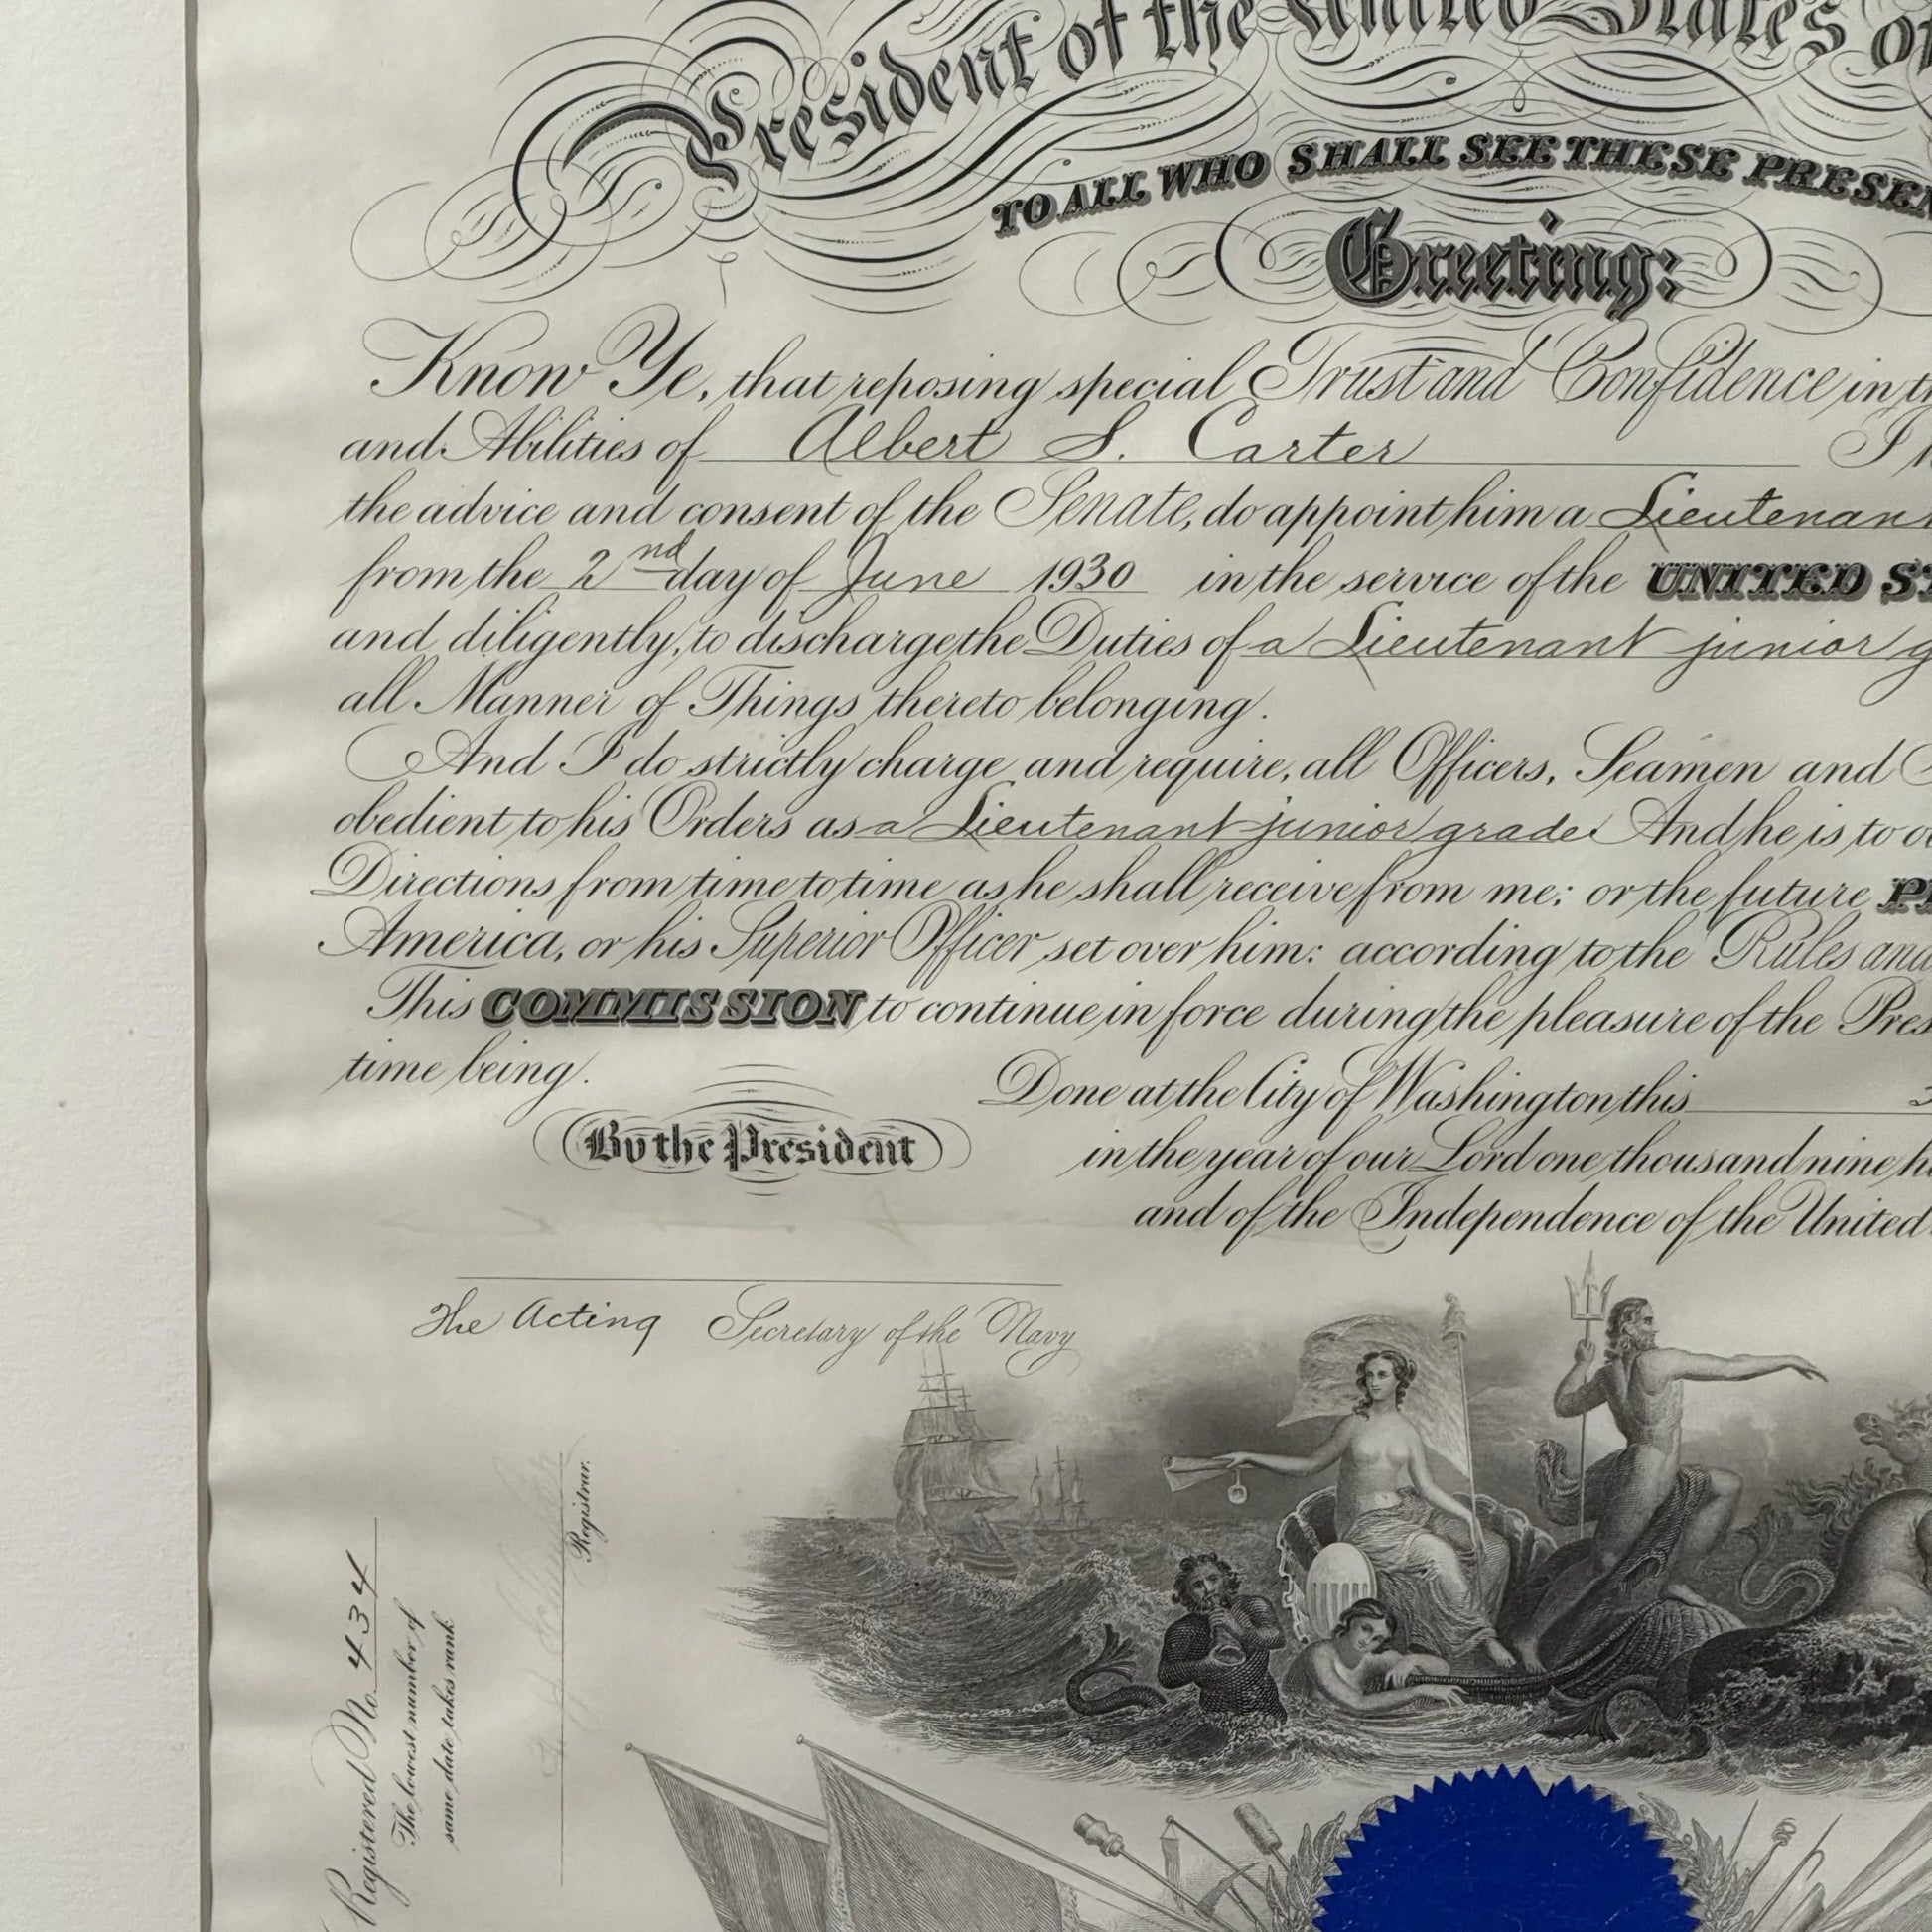 President of the United States of
TO ALL WHO SHALL SEE THESE
Greeting:
Know Ye, that reposing special Trust and Confidence in
and Abilities of Albert S. Carter I
the advice and consent of the Senate, do appoint him a
from the 2nd day of June 1930 in the service of the UNITED
and diligently, to discharge the Duties of a Lieutenant junior
all Manner of Things thereto belonging.
And I do strictly charge and require, all Officers, Seamen and
obedient to his Orders as a Lieutenant junior grade And he is to
Directions from time to time as he shall receive from me; or the future
America, or his Superior Officer set over him: according to the Rules and
This COMMISSION to continue in force during the pleasure of the
time being.
Done at the City of Washington this
By the President
in the year of our Lord one thousand nine
and of the Independence of the United
The Acting Secretary of the Navy
Registrar.
Registered No. 434
The lowest number of
same date takes rank